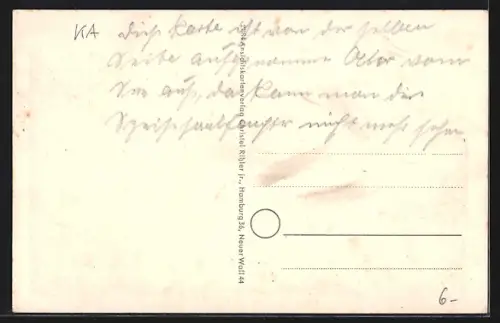 KA
Diese Karte ist von der selben
Seite aufgenommen Aber vom
See aus, da kann man die
Speisesaalfenster nicht mehr sehen.
Ansichtskartenverlag Christel Rißler jr., Hamburg 36, Neuer Wall 44
6-